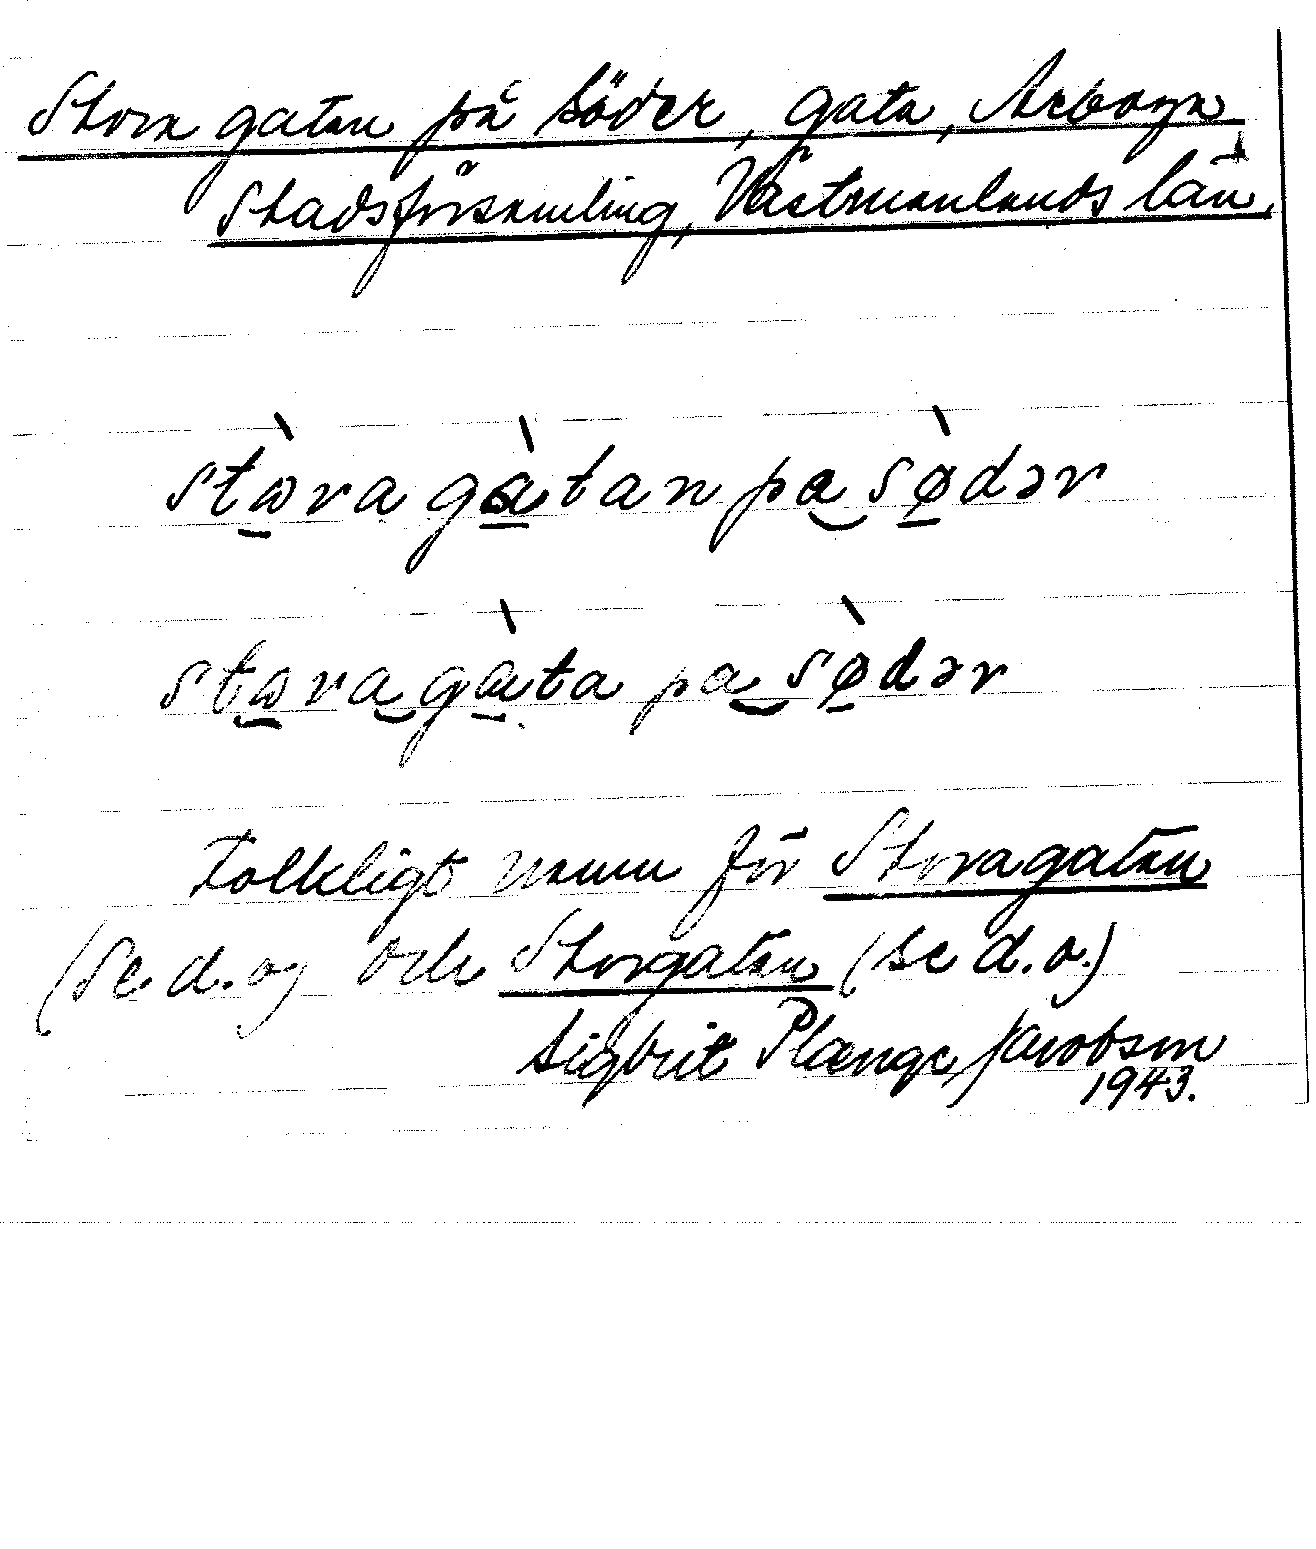 Stora gatan på Söder, gata, Arboga
Stadsförsamling, Västmanlands län.
stɷ̀ra gàtan pa sø̀dər
stɷra gàta pa sø̀dər
Folkligt namn för Storagatan
(Se d.o) och Storgatan (se d.o.)
Sigbrit Plænge Jacobson
1943.